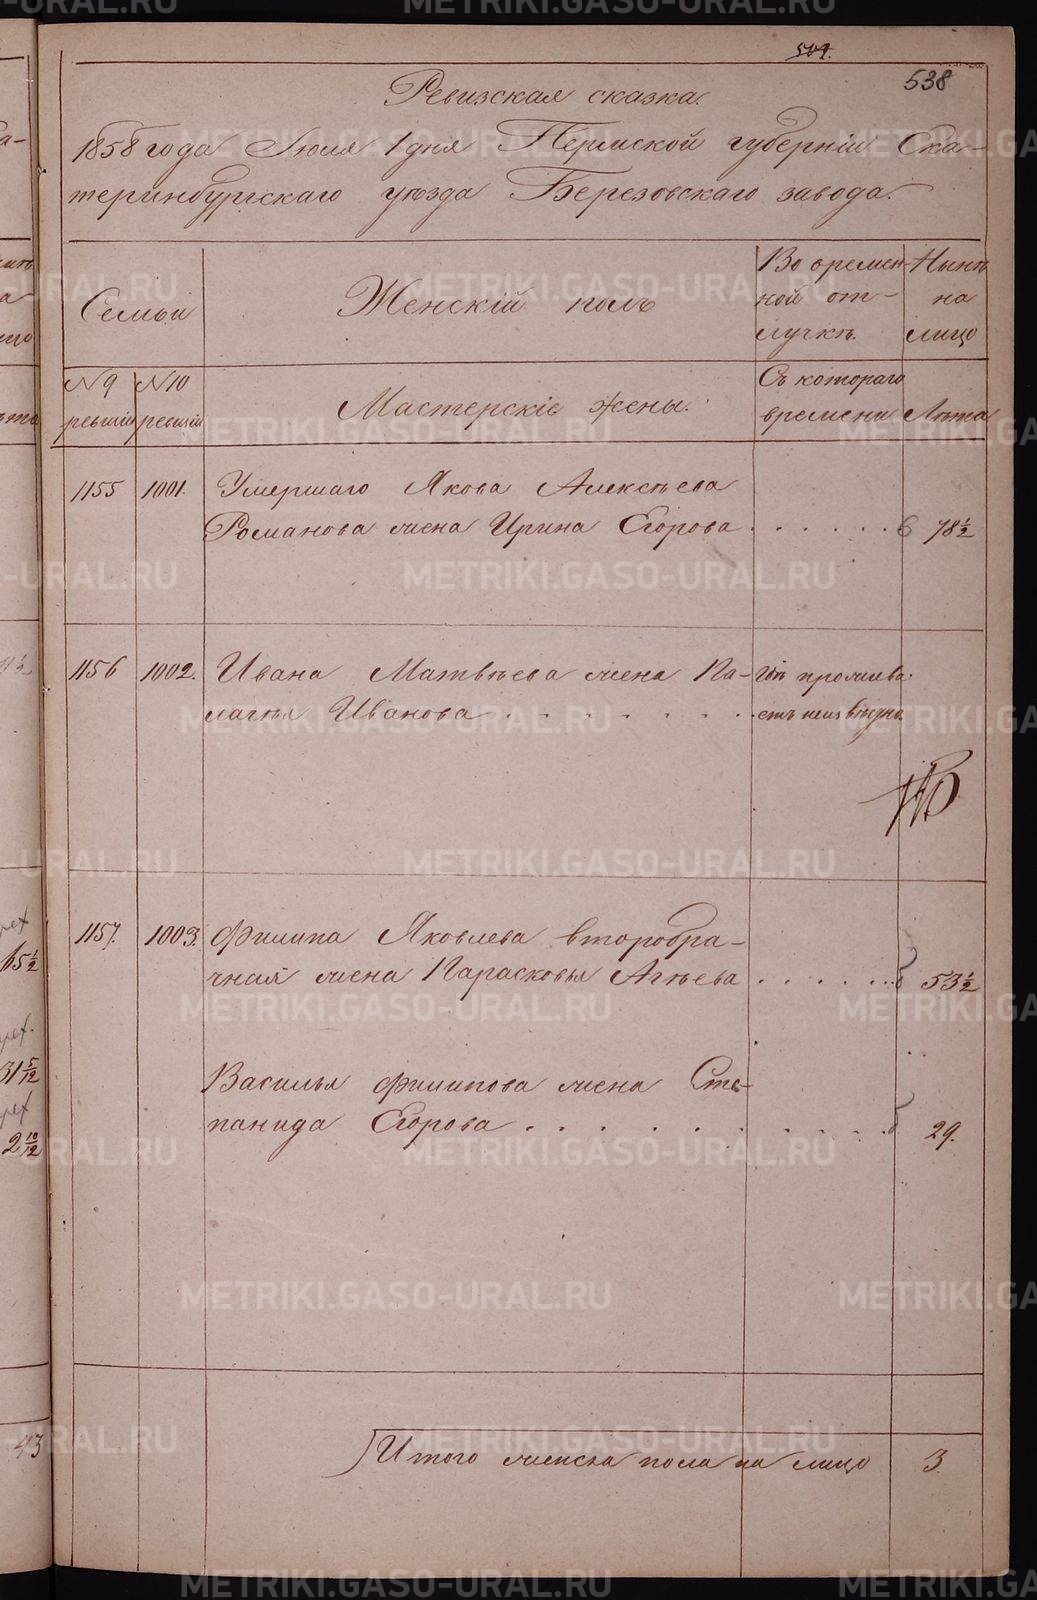 504.
538
Ревизская сказка.
1858 года Июля 1 дня Пермской губерніи Ека-
теринбургскаго уѣзда Березовскаго завода.
Семьи
Женскій полъ
Во времен-
ной от-
лучкѣ.
Нынѣ
на
лицо
N 9
ревизіи
N 10
ревизіи
Мастерскіе жены.
Съ котораго
времени
Лѣта
1155 1001. Умершаго Якова Алексѣева
Романова жена Ирина Егорова . . . . . . 78½
1156 1002. Ивана Матвѣева жена Па- Гдѣ прожива-
лагѣя Иванова . . . . . . . етъ неизвѣстно.
1157. 1003. Филипа Яковлева второбра-
чная жена Парасковья Агѣева . . . . . . 53½
Василья Филипова жена Сте-
панида Егорова . . . . . . . . . . 29.
Итого женска пола на лицо 3
65½
31 5/12
2 10/12
43
METRIKI.GASO-URAL.RU